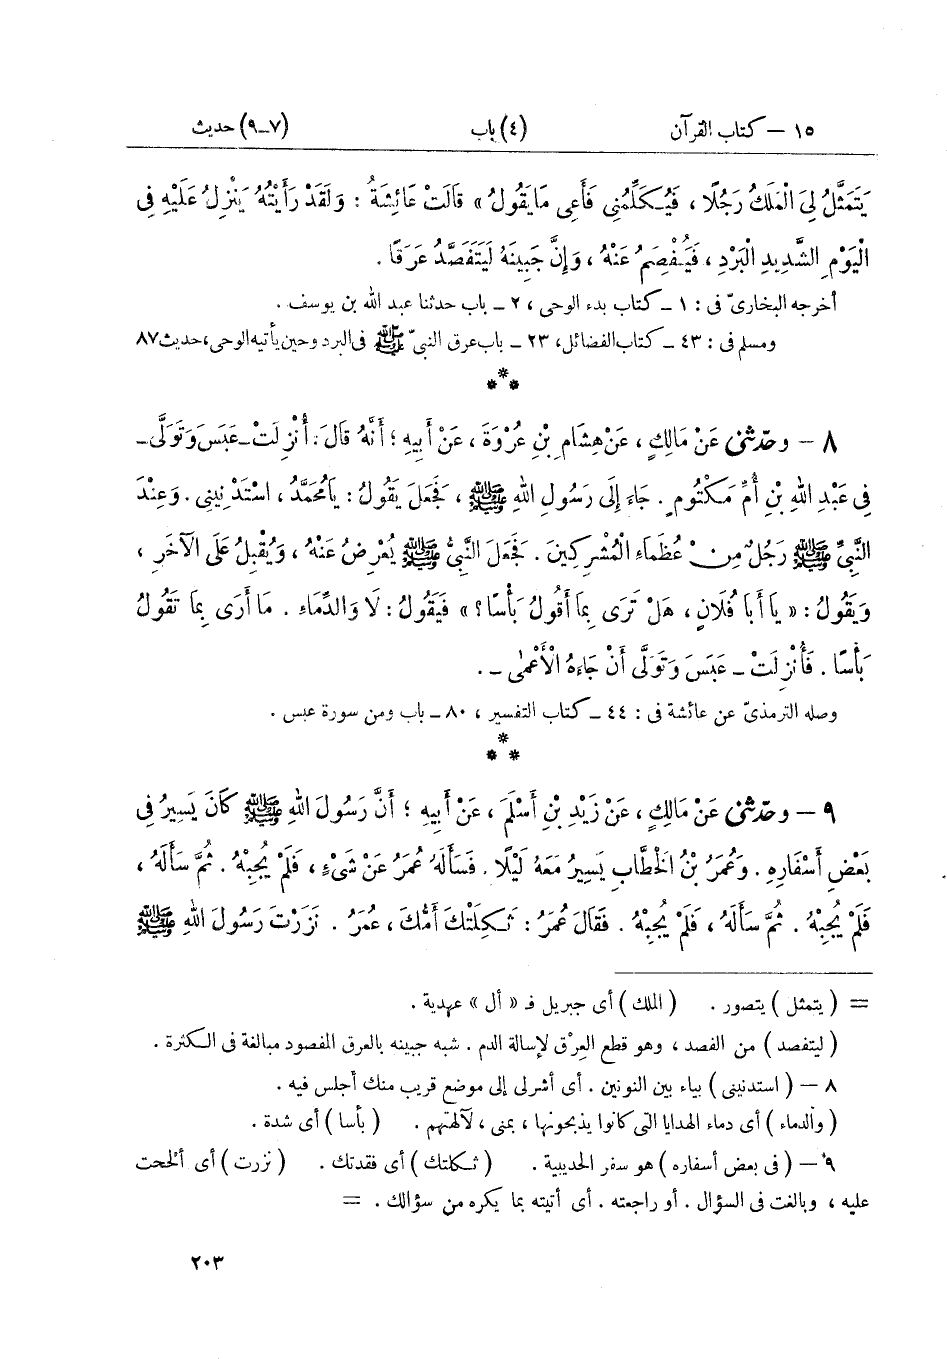 ١٥ – كتاب القرآن (٤) باب (٧–٩) حديث
يَتَمَثَّلُ لِىَ الْمَلَكُ رَجُلًا ، فَيُكَلِّمُنِى فَأَعِى مَا يَقُولُ » قَالَتْ عَائِشَةُ : وَلَقَدْ رَأَيْتُهُ يَنْزِلُ عَلَيْهِ فِى
الْيَوْمِ الشَّدِيدِ الْبَرْدِ ، فَيَفْصِمُ عَنْهُ ، وَإِنَّ جَبِينَهُ لَيَتَفَصَّدُ عَرَقًا .
أخرجه البخارىّ فى : ١ – كتاب بدء الوحى ، ٢ – باب حدثنا عبد الله بن يوسف .
ومسلم فى : ٤٣ – كتاب الفضائل، ٢٣ – باب عرق النبىّ ﷺ فى البرد وحين يأتيه الوحى، حديث ٨٧
***
٨ – وحدّثنى عَنْ مَالِكٍ ، عَنْ هِشَامِ بْنِ عُرْوَةَ ، عَنْ أَبِيهِ ؛ أَنَّهُ قَالَ : أُنْزِلَتْ – عَبَسَ وَتَوَلَّى –
فِى عَبْدِ اللهِ بْنِ أُمِّ مَكْتُومٍ . جَاءَ إِلَى رَسُولِ اللهِ ﷺ ، فَجَعَلَ يَقُولُ : يَا مُحَمَّدُ ، اسْتَدْنِينِى . وَعِنْدَ
النَّبِىِّ ﷺ رَجُلٌ مِنْ عُظَمَاءِ الْمُشْرِكِينَ . فَجَعَلَ النَّبِىُّ ﷺ يُعْرِضُ عَنْهُ ، وَيُقْبِلُ عَلَى الْآخَرِ ،
وَيَقُولُ : « يَا أَبَا فُلَانٍ ، هَلْ تَرَى بِمَا أَقُولُ بَأْسًا ؟ » فَيَقُولُ : لَا وَالدِّمَاءِ . مَا أَرَى بِمَا تَقُولُ
بَأْسًا . فَأُنْزِلَتْ – عَبَسَ وَتَوَلَّى أَنْ جَاءَهُ الْأَعْمَى – .
وصله الترمذىّ عن عائشة فى : ٤٤ – كتاب التفسير ، ٨٠ – باب ومن سورة عبس .
***
٩ – وحدّثنى عَنْ مَالِكٍ ، عَنْ زَيْدِ بْنِ أَسْلَمَ ، عَنْ أَبِيهِ ؛ أَنَّ رَسُولَ اللهِ ﷺ كَانَ يَسِيرُ فِى
بَعْضِ أَسْفَارِهِ . وَعُمَرُ بْنُ الْخَطَّابِ يَسِيرُ مَعَهُ لَيْلًا . فَسَأَلَهُ عُمَرُ عَنْ شَىْءٍ ، فَلَمْ يُجِبْهُ . ثُمَّ سَأَلَهُ ،
فَلَمْ يُجِبْهُ . ثُمَّ سَأَلَهُ ، فَلَمْ يُجِبْهُ . فَقَالَ عُمَرُ : ثَكِلَتْكَ أُمُّكَ ، عُمَرُ . نَزَرْتَ رَسُولَ اللهِ ﷺ
= ( يتمثل ) يتصور . ( الملك ) أى جبريل فـ « أل » عهدية .
( ليتفصد ) من الفصد ، وهو قطع العِرْق لإسالة الدم . شبه جبينه بالعرق المفصود مبالغة فى الكثرة .
٨ – ( استدنينى ) بياء بين النونين . أى أشر لى إلى موضع قريب منك أجلس فيه .
( والدماء ) أى دماء الهدايا التى كانوا يذبحونها ، بمنى ، لآلهتهم . ( بأسا ) أى شدة .
٩ – ( فى بعض أسفاره ) هو سفر الحديبية . ( ثكلتك ) أى فقدتك . ( نزرت ) أى ألححت
عليه ، وبالغت فى السؤال . أو راجعته . أى أتيته بما يكره من سؤالك . =
٢٠٣